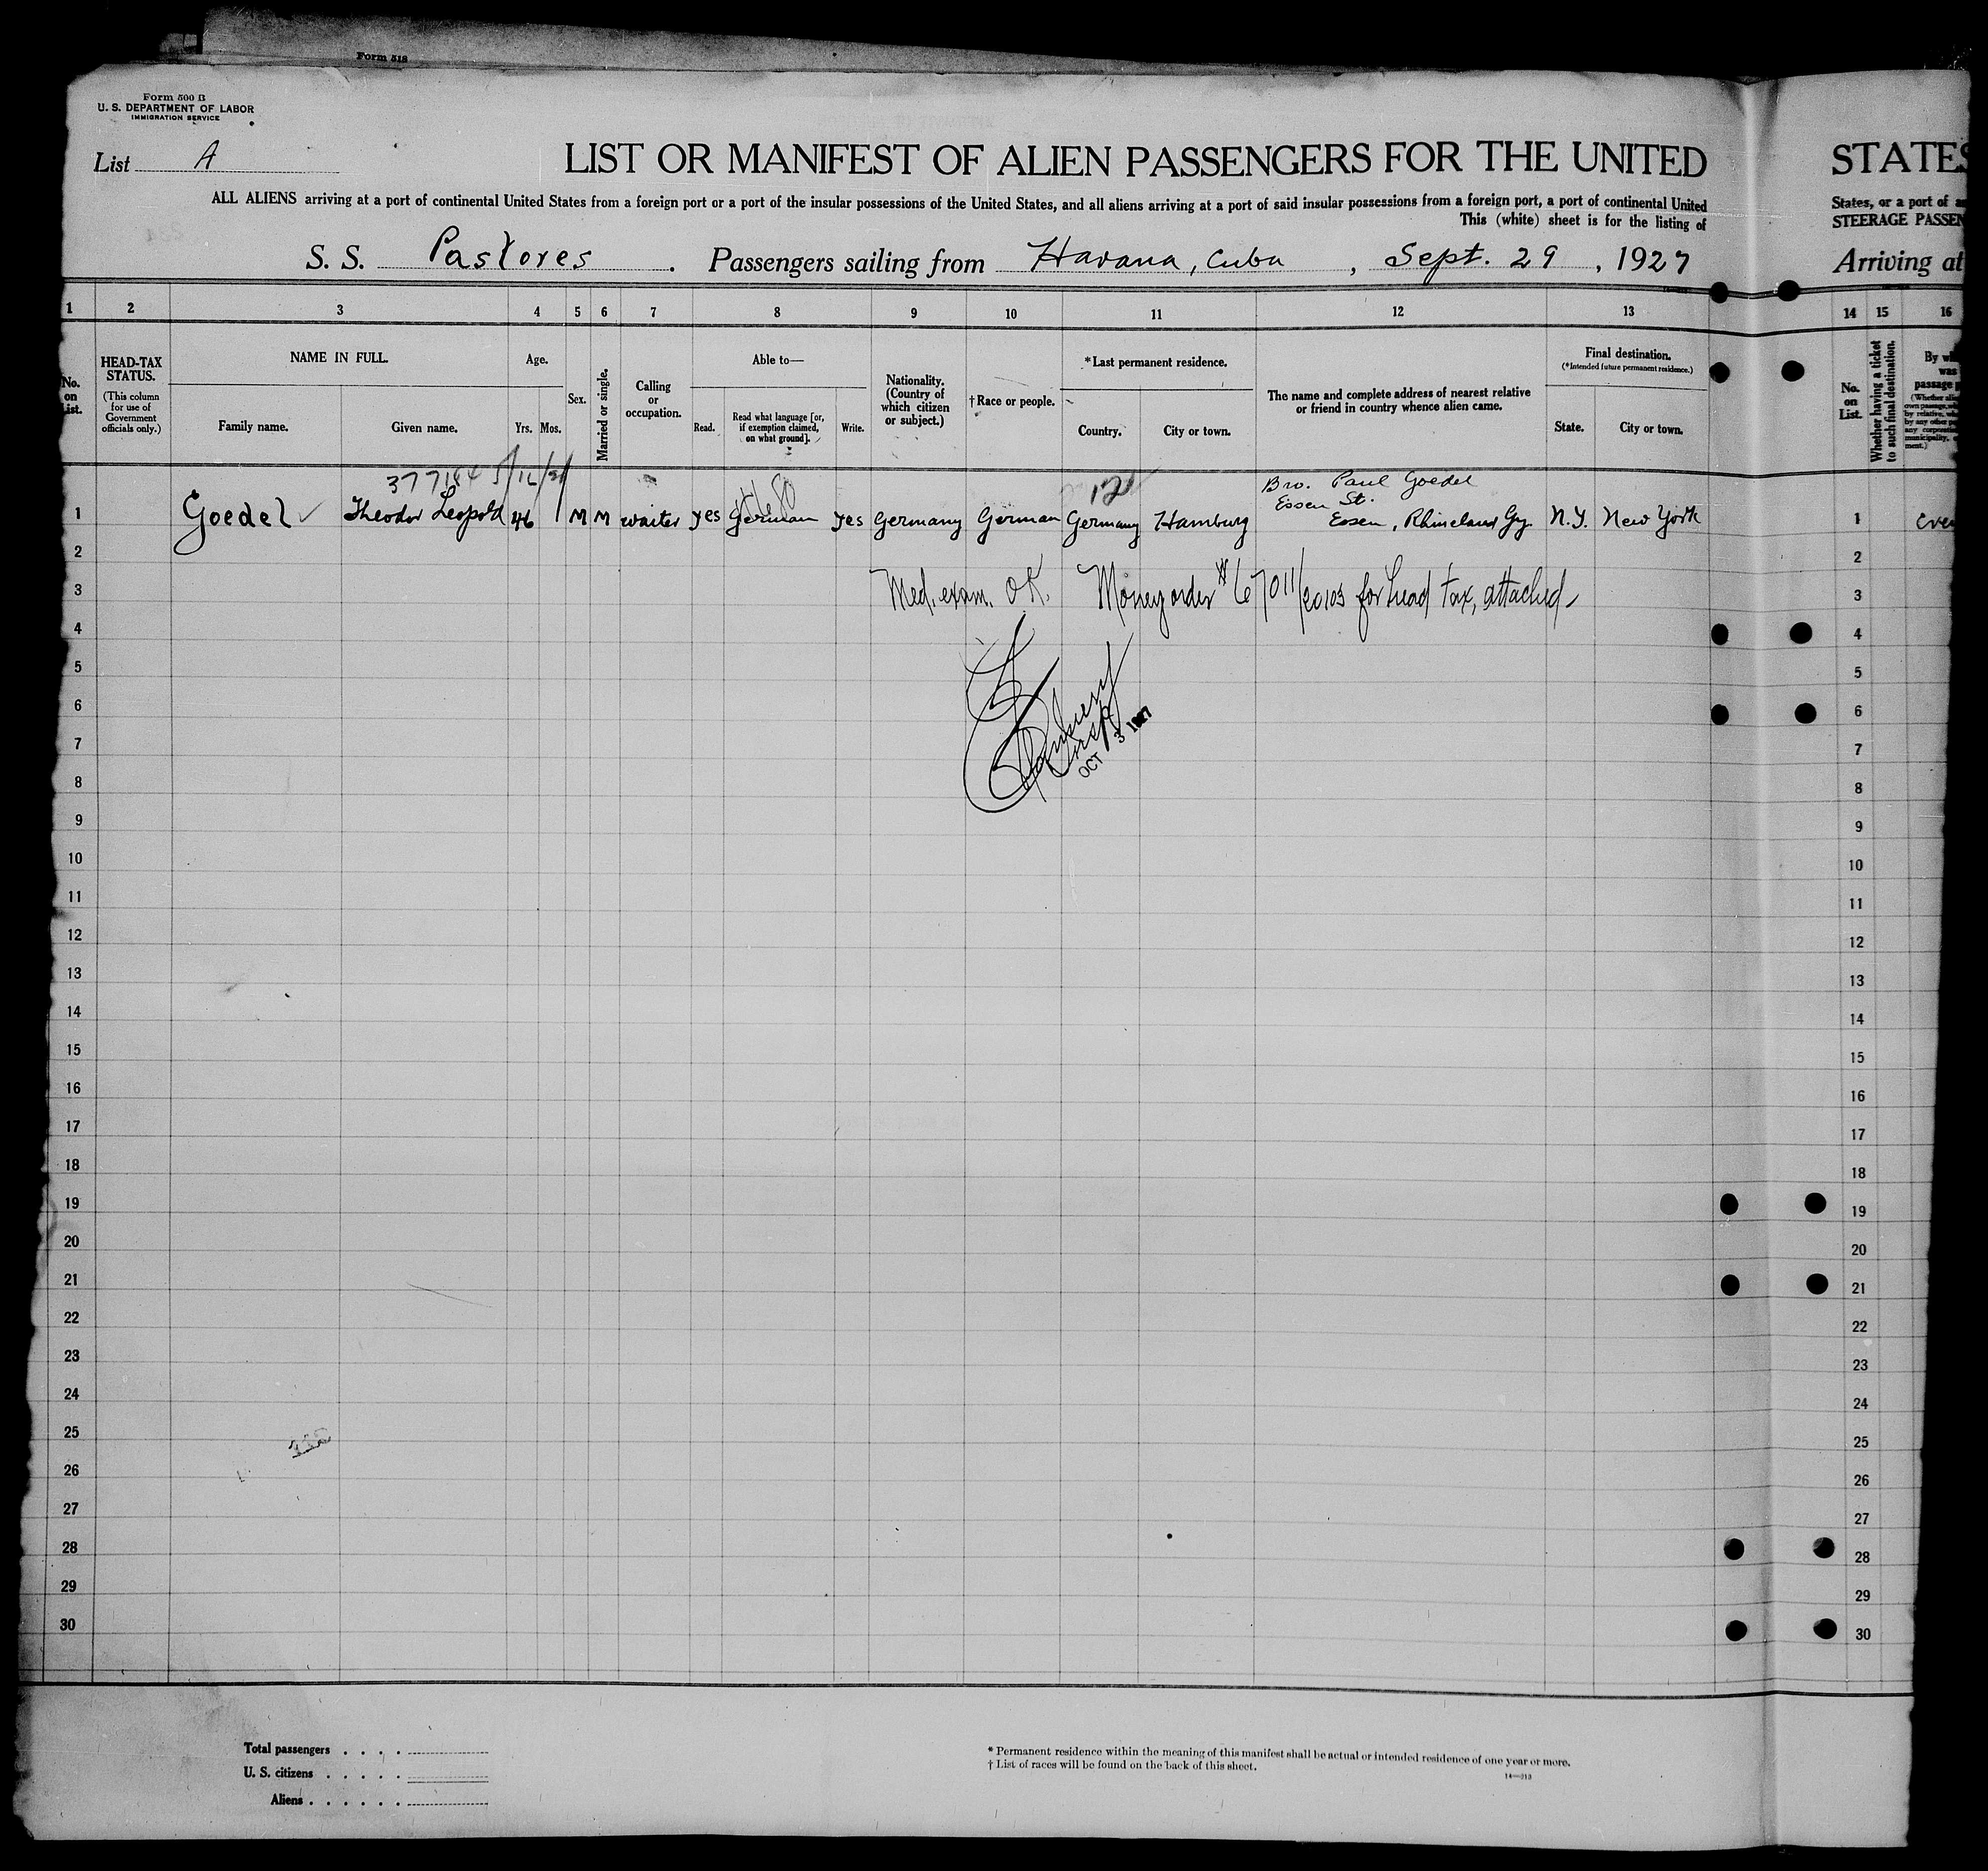 Form 518
Form 500 B
U. S. DEPARTMENT OF LABOR
IMMIGRATION SERVICE
List A
LIST OR MANIFEST OF ALIEN PASSENGERS FOR THE UNITED STATES
ALL ALIENS arriving at a port of continental United States from a foreign port or a port of the insular possessions of the United States, and all aliens arriving at a port of said insular possessions from a foreign port, a port of continental United
States, or a port of
This (white) sheet is for the listing of
STEERAGE PASSEN
S. S. Pastores. Passengers sailing from Havana, Cuba, Sept. 29, 1927
Arriving at
1 2 3 4 5 6 7 8 9 10 11 12 13 14 15 16
No. on List.
HEAD-TAX STATUS.
(This column for use of Government officials only.)
NAME IN FULL.
Family name.
Given name.
Age.
Yrs. Mos.
Sex.
Married or single.
Calling or occupation.
Able to—
Read.
Read what language [or, if exemption claimed, on what ground].
Write.
Nationality. (Country of which citizen or subject.)
†Race or people.
*Last permanent residence.
Country.
City or town.
The name and complete address of nearest relative or friend in country whence alien came.
Final destination.
(*Intended future permanent residence.)
State.
City or town.
No. on List.
Whether having a ticket to such final destination.
By
was
passage
Bro. Paul Goedel
Essen St.
1 Goedel Theodor Leopold 46 M M waiter yes German yes Germany German Germany Hamburg Essen, Rhineland Gy. N.Y. New York 1
2 2
3 Med. exam. OK. Money order #67011/20103 for head tax, attached 3
4 4
5 5
6 6
OCT 3 1927
7 7
8 8
9 9
10 10
11 11
12 12
13 13
14 14
15 15
16 16
17 17
18 18
19 19
20 20
21 21
22 22
23 23
24 24
25 25
26 26
27 27
28 28
29 29
30 30
Total passengers . . . .
U. S. citizens . . . . .
Aliens . . . . . .
* Permanent residence within the meaning of this manifest shall be actual or intended residence of one year or more.
† List of races will be found on the back of this sheet.
14—313